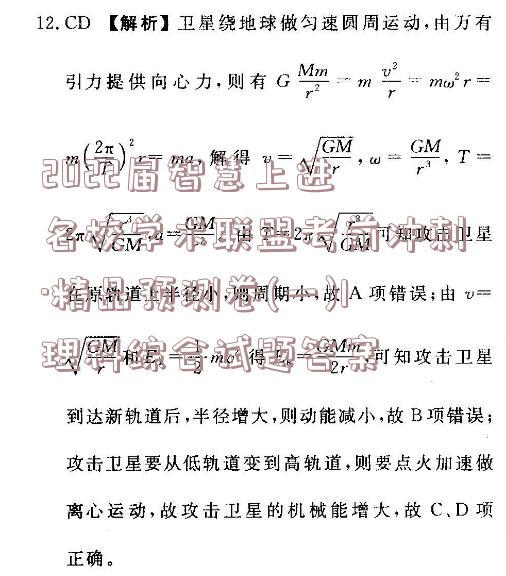 12. CD 【解析】卫星绕地球做匀速圆周运动,由万有
引力提供向心力,则有 G Mm/r² = m v²/r = mω²r =
m(2π/T)² r = ma, 解得 v = √(GM/r), ω = GM/r³, T =
2π√(r³/GM), a = GM/r², 由 T = 2π√(r³/GM) 可知攻击卫星
在原轨道上半径小,则周期小,故 A 项错误;由 v =
√(GM/r) 和 Eₖ = mv² 得 Eₖ = GMm/2r, 可知攻击卫星
到达新轨道后,半径增大,则动能减小,故 B 项错误;
攻击卫星要从低轨道变到高轨道,则要点火加速做
离心运动,故攻击卫星的机械能增大,故 C、D 项
正确。
2022届智慧上进
名校学术联盟考前冲刺
·精品预测卷(一)|
理科综合试题答案